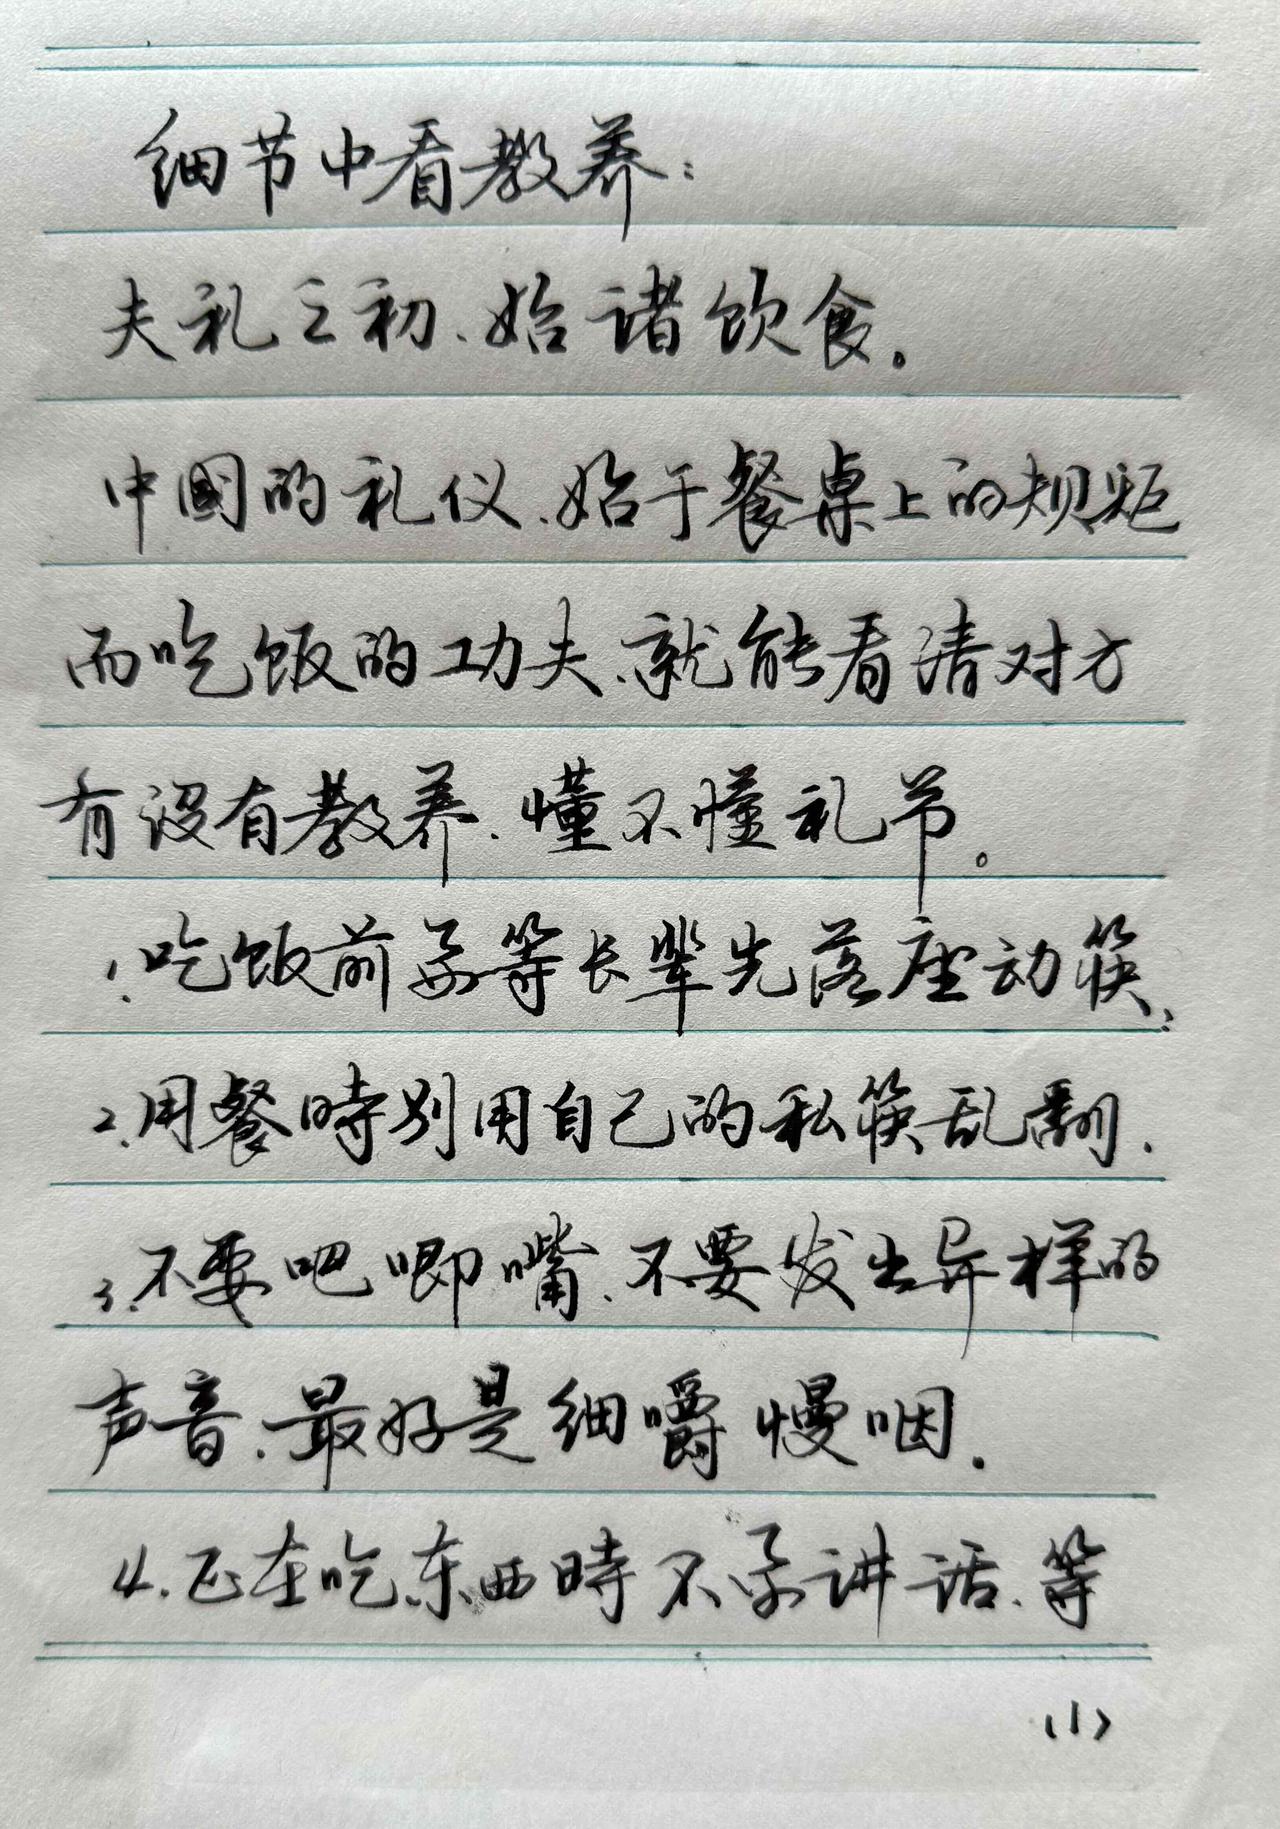 细节中看教养：
夫礼之初、始诸饮食。
中國的礼仪、始于餐桌上的规矩
而吃饭的功夫、就能看清对方
有没有教养、懂不懂礼节。
1、吃饭前要等长辈先落座动筷；
2、用餐時别用自己的私筷乱翻.
3、不要吧唧嘴、不要发出异样的
声音、最好是细嚼慢咽.
4、正在吃东西時不要讲话、等
(1)